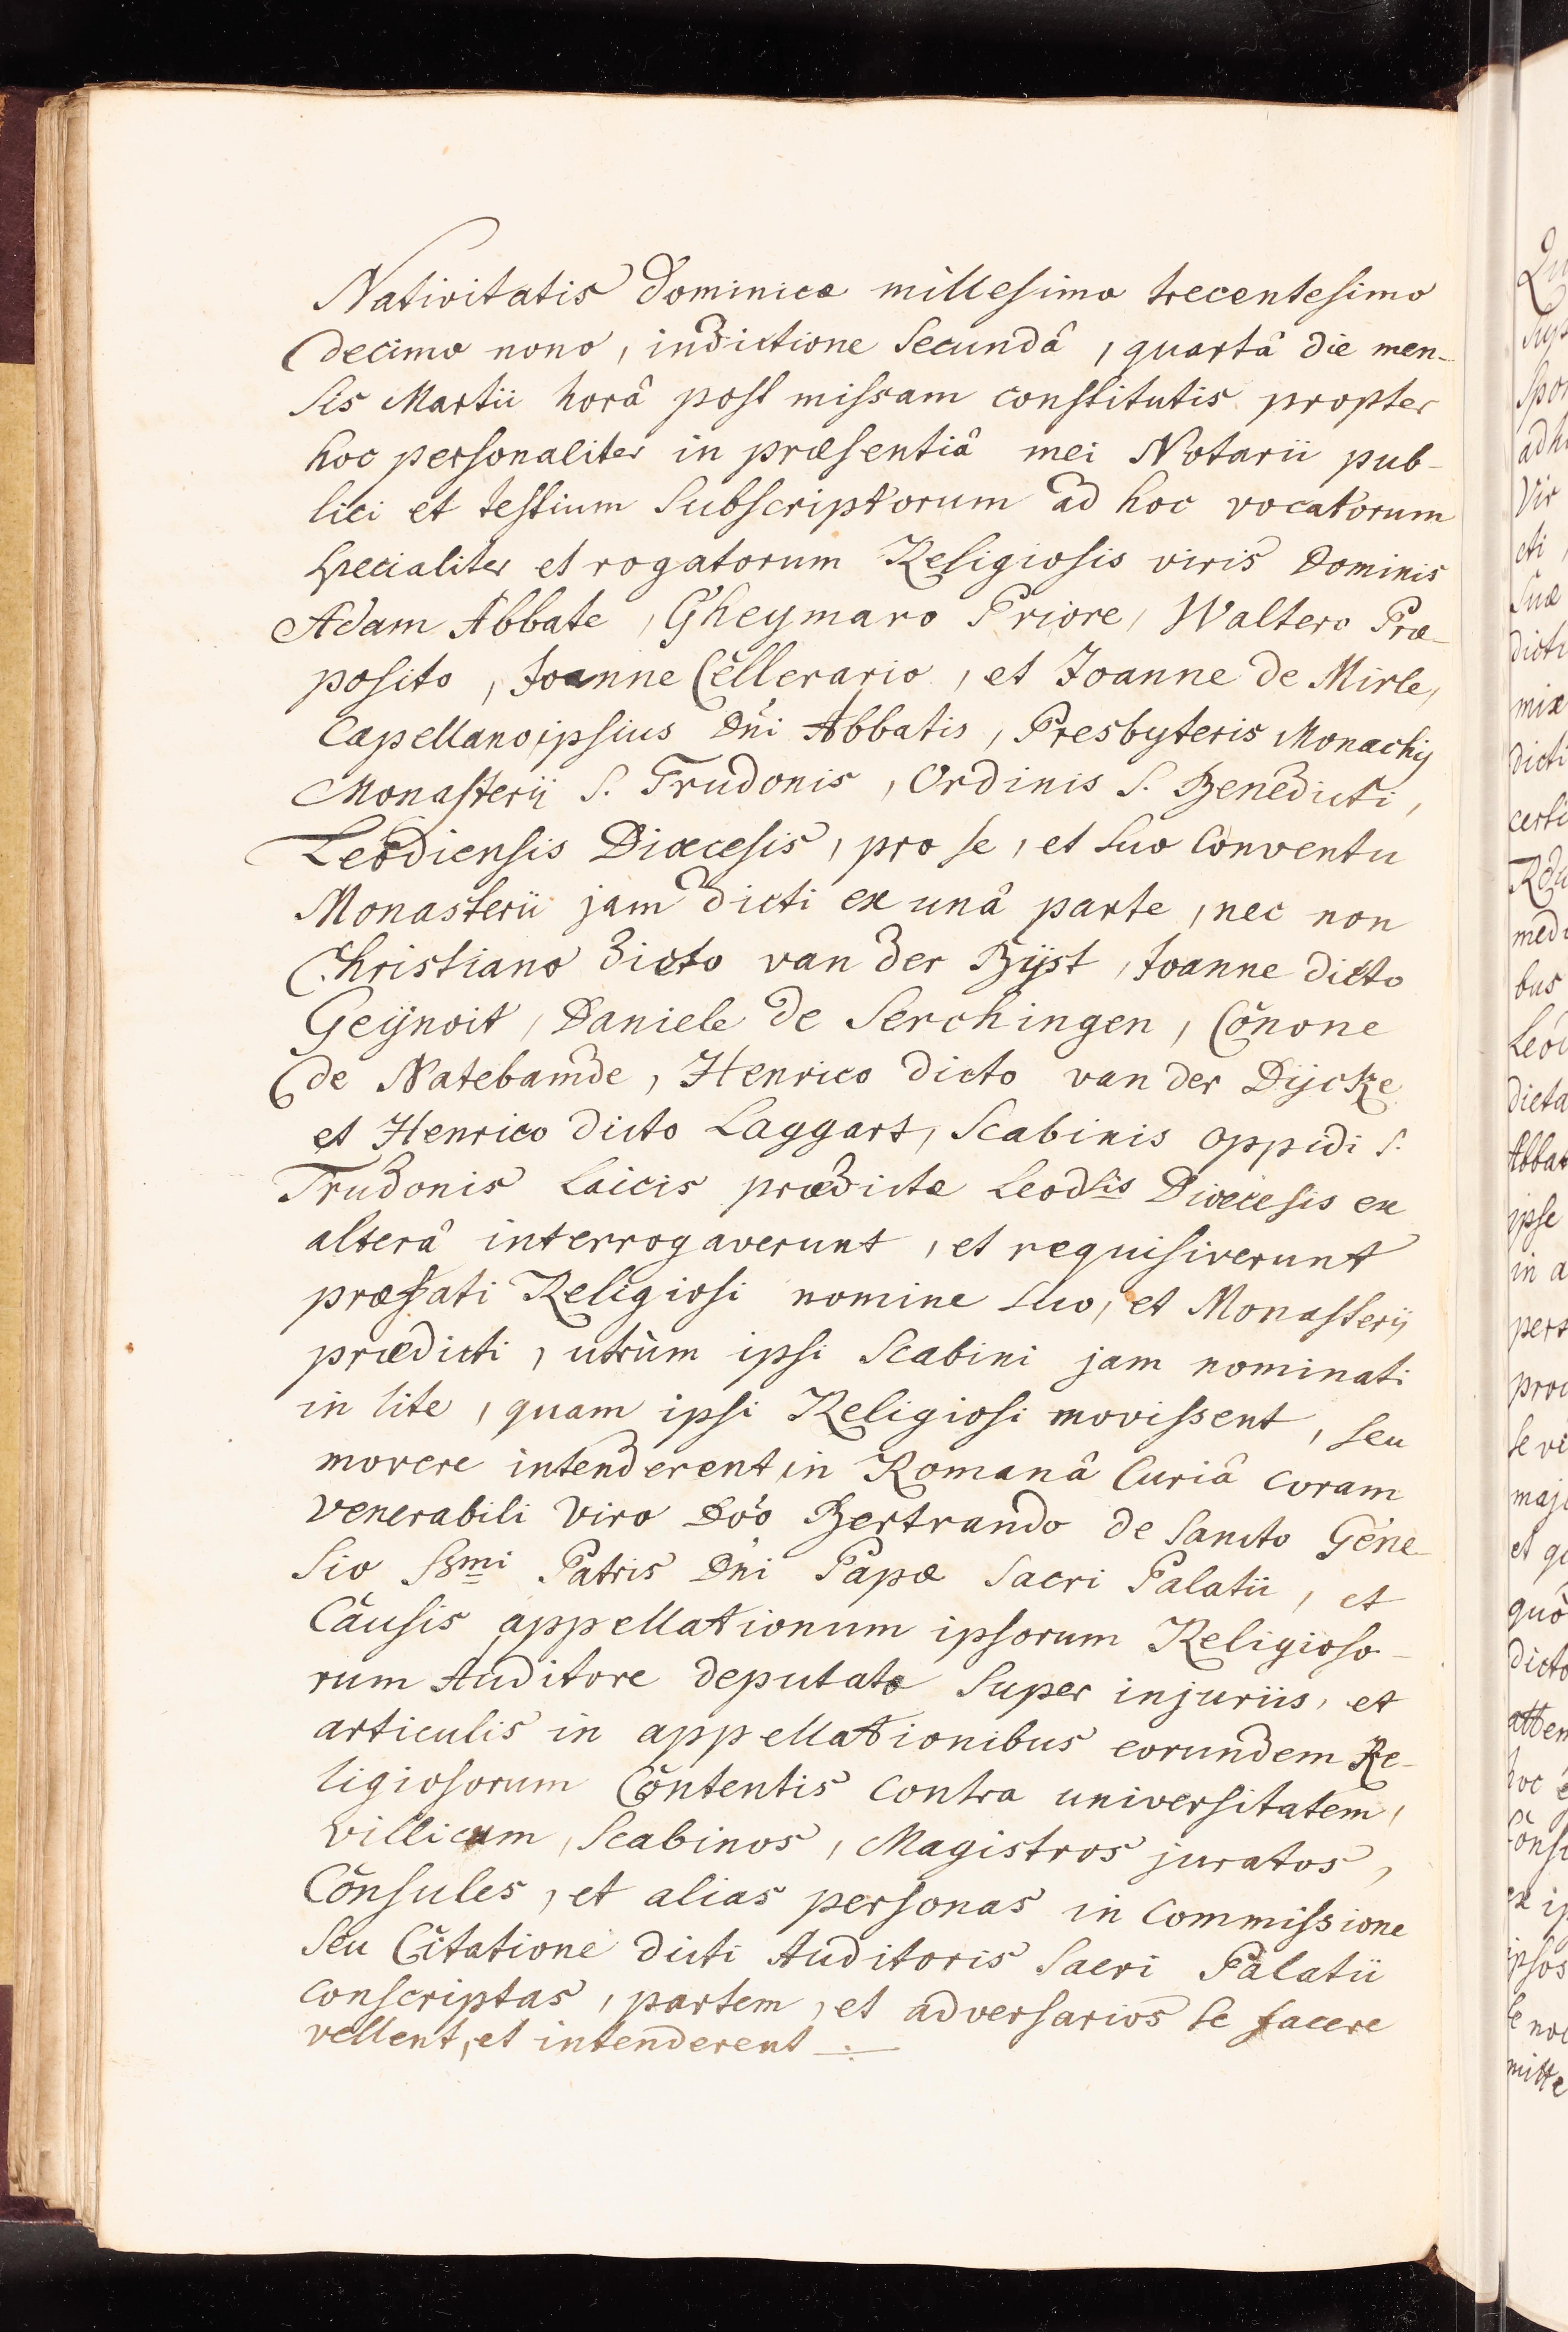 Nativitatis Dominicæ millesimo trecentesimo
decimo nono, indictione secundâ, quartâ die men-
sis Martii horâ post missam constitutis propter
hoc personaliter in præsentiâ mei Notarii pub-
lici et testium subscriptorum ad hoc vocatorum
specialiter et rogatorum Religiosis viris Dominis
Adam Abbate, Gheymaro Priore, Waltero Præ-
posito, Joanne Cellerario, et Joanne de Mirle,
Capellano ipsius Dñi Abbatis, Presbyteris Monachij
Monasterii S. Trudonis, Ordinis S. Benedicti,
Leodiensis Diœcesis, pro se, et suo Conventu
Monasterii jam dicti ex unâ parte, nec non
Christiano dicto van der Bÿst, Joanne dicto
Geÿnoit, Daniele de Serchingen, Conone
de Natebamde, Henrico dicto van der Dÿcke
et Henrico dicto Laggart, Scabinis oppidi S.
Trudonis laicis prædictæ Leodsis Diœcesis ex
alterâ interrogaverunt, et requisiverunt
præfati Religiosi nomine suo, et Monasterij
prædicti, utrùm ipsi Scabini jam nominati
in lite, quam ipsi Religiosi movissent, seu
movere intenderent in Romanâ Curiâ coram
venerabili viro Dño Bertrando de Sancto Gene-
sio Ssmi Patris Dñi Papæ Sacri Palatii, et
Causis appellationum ipsorum Religioso-
rum Auditore deputato super injuriis, et
articulis in appellationibus eorundem Re-
ligiosorum Contentis contra universitatem,
villicum, Scabinos, Magistros juratos,
Consules, et alias personas in Commissione
seu Citatione dicti Auditoris Sacri Palatii
conscriptas, partem, et adversarios se facere
vellent, et intenderent